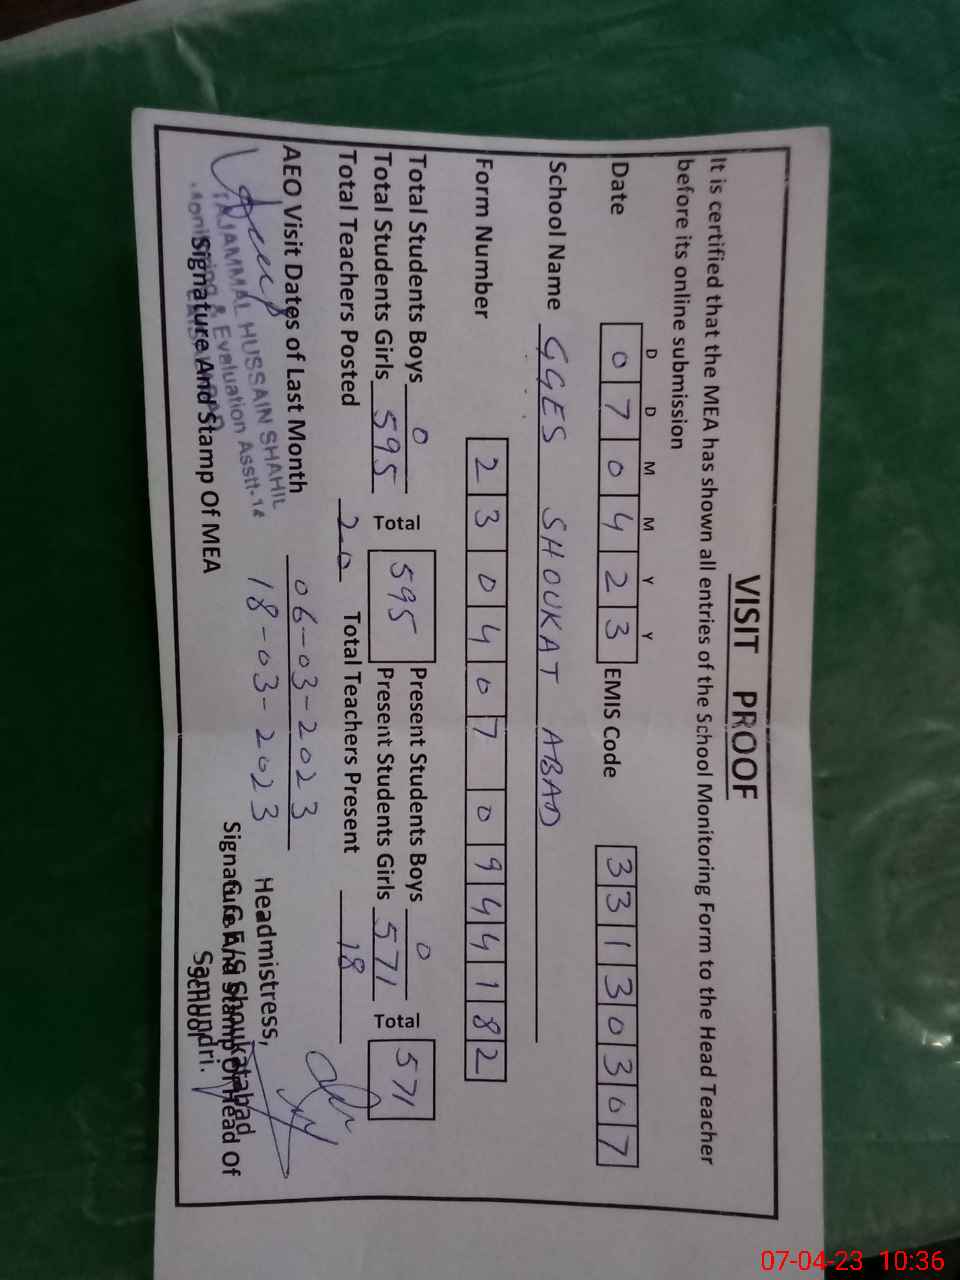 VISIT PROOF
It is certified that the MEA has shown all entries of the School Monitoring Form to the Head Teacher
before its online submission
D D M M Y Y
Date 0 7 0 4 2 3 EMIS Code 3 3 1 3 0 3 0 7
School Name GGES SHOUKAT ABAD
Form Number 2 3 0 4 0 7 0 9 4 4 1 8 2
Total Students Boys 0 Total 595 Present Students Boys 0 Total 571
Total Students Girls 595 Present Students Girls 571
Total Teachers Posted 20 Total Teachers Present 18
AEO Visit Dates of Last Month 06-03-2023
18-03-2023
TAJAMMAL HUSSAIN SHAHIL
Monitoring & Evaluation Asstt-14
Signature And Stamp Of MEA
Headmistress,
G.G.E/S Shoukatabad
Samundri.
Signature And Stamp Of Head Of
School
07-04-23 10:36